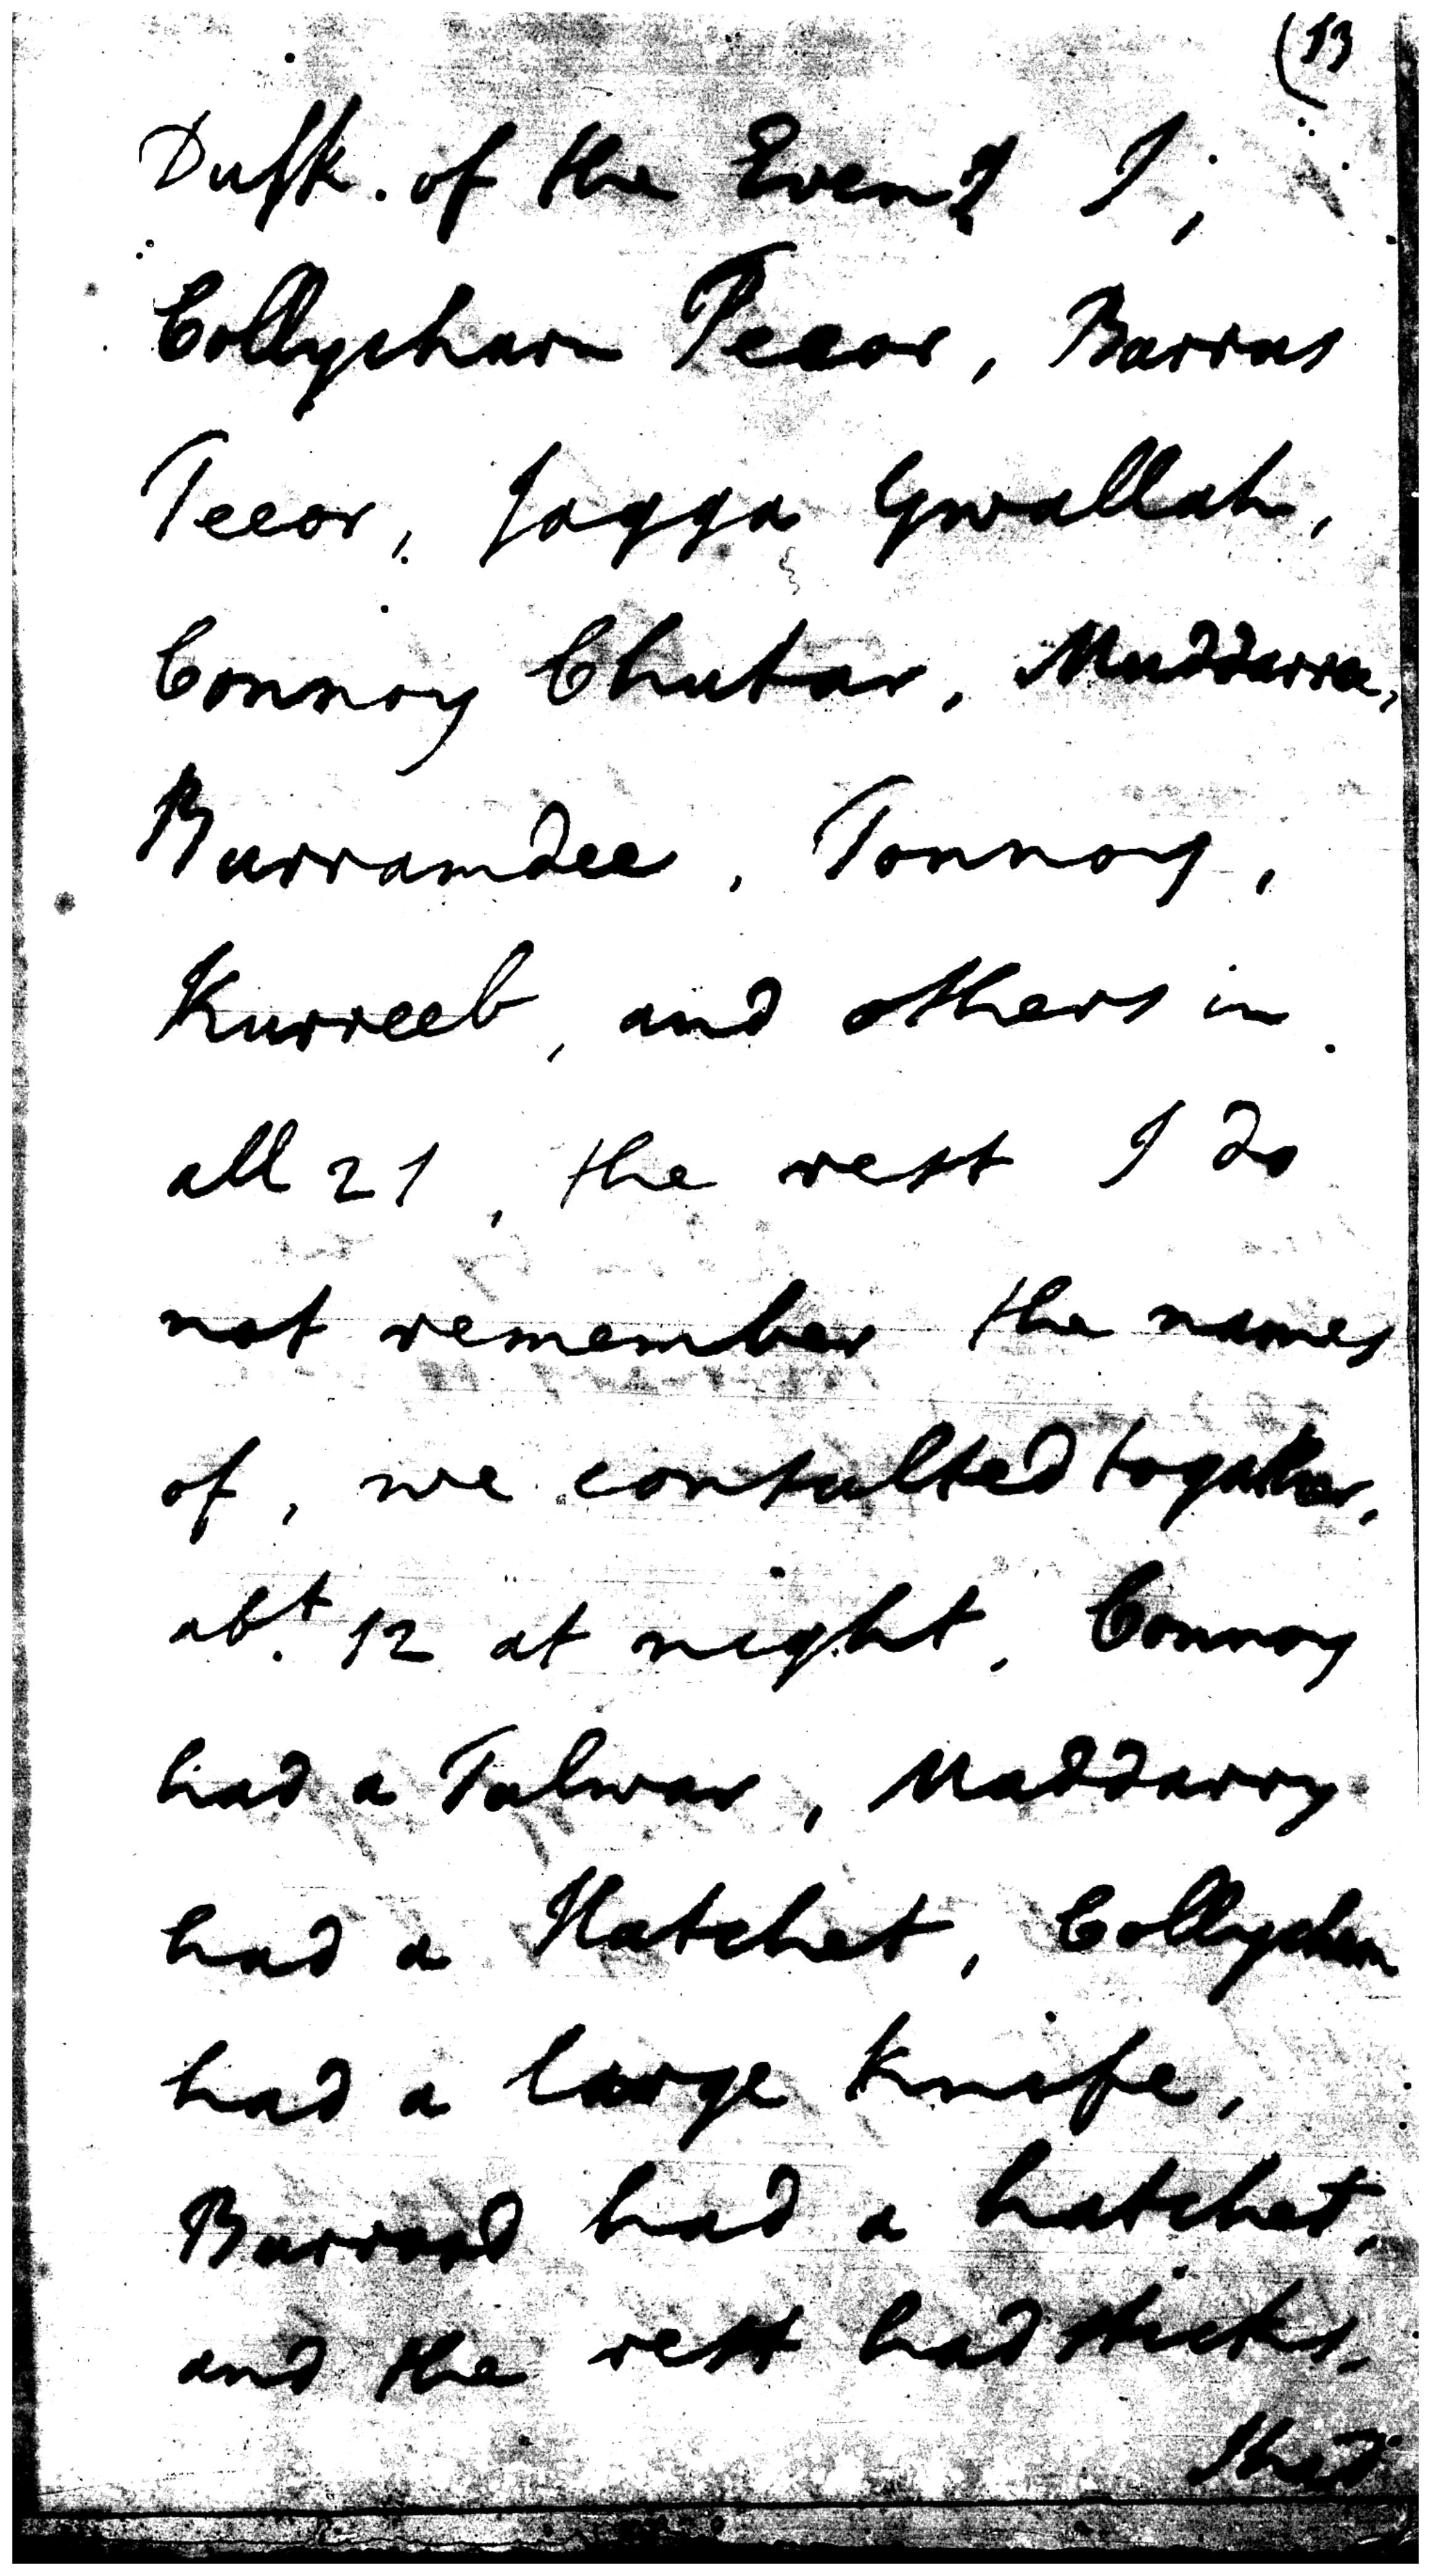 (13
Dusk. of the Eveng I,
Collycharn Teeor, Barras
Teeor, Jogga Gwallah,
Connoy Chutar, Muddarra,
Burramdee, Tonnoy,
Kurreeb, and others in
all 21, the rest I do
not remember the names
of, we consulted together,
abt. 12 at night, Connoy
had a Talwar, Maddarry
had a Hatchet, Collycharn
had a large knife,
had a hatchet,
and the rest had sticks.
I had